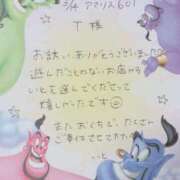 3/4 アマリス601
T様
お誘いありがとうございました
遊んだことのないお店から
いとを選んでくださって
嬉しかったです
またおくちで、たくさん
ご奉仕させて下さい
いと